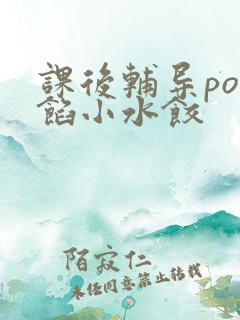 課後輔导po
餡小水餃
陌寂仁
未经同意禁止转载